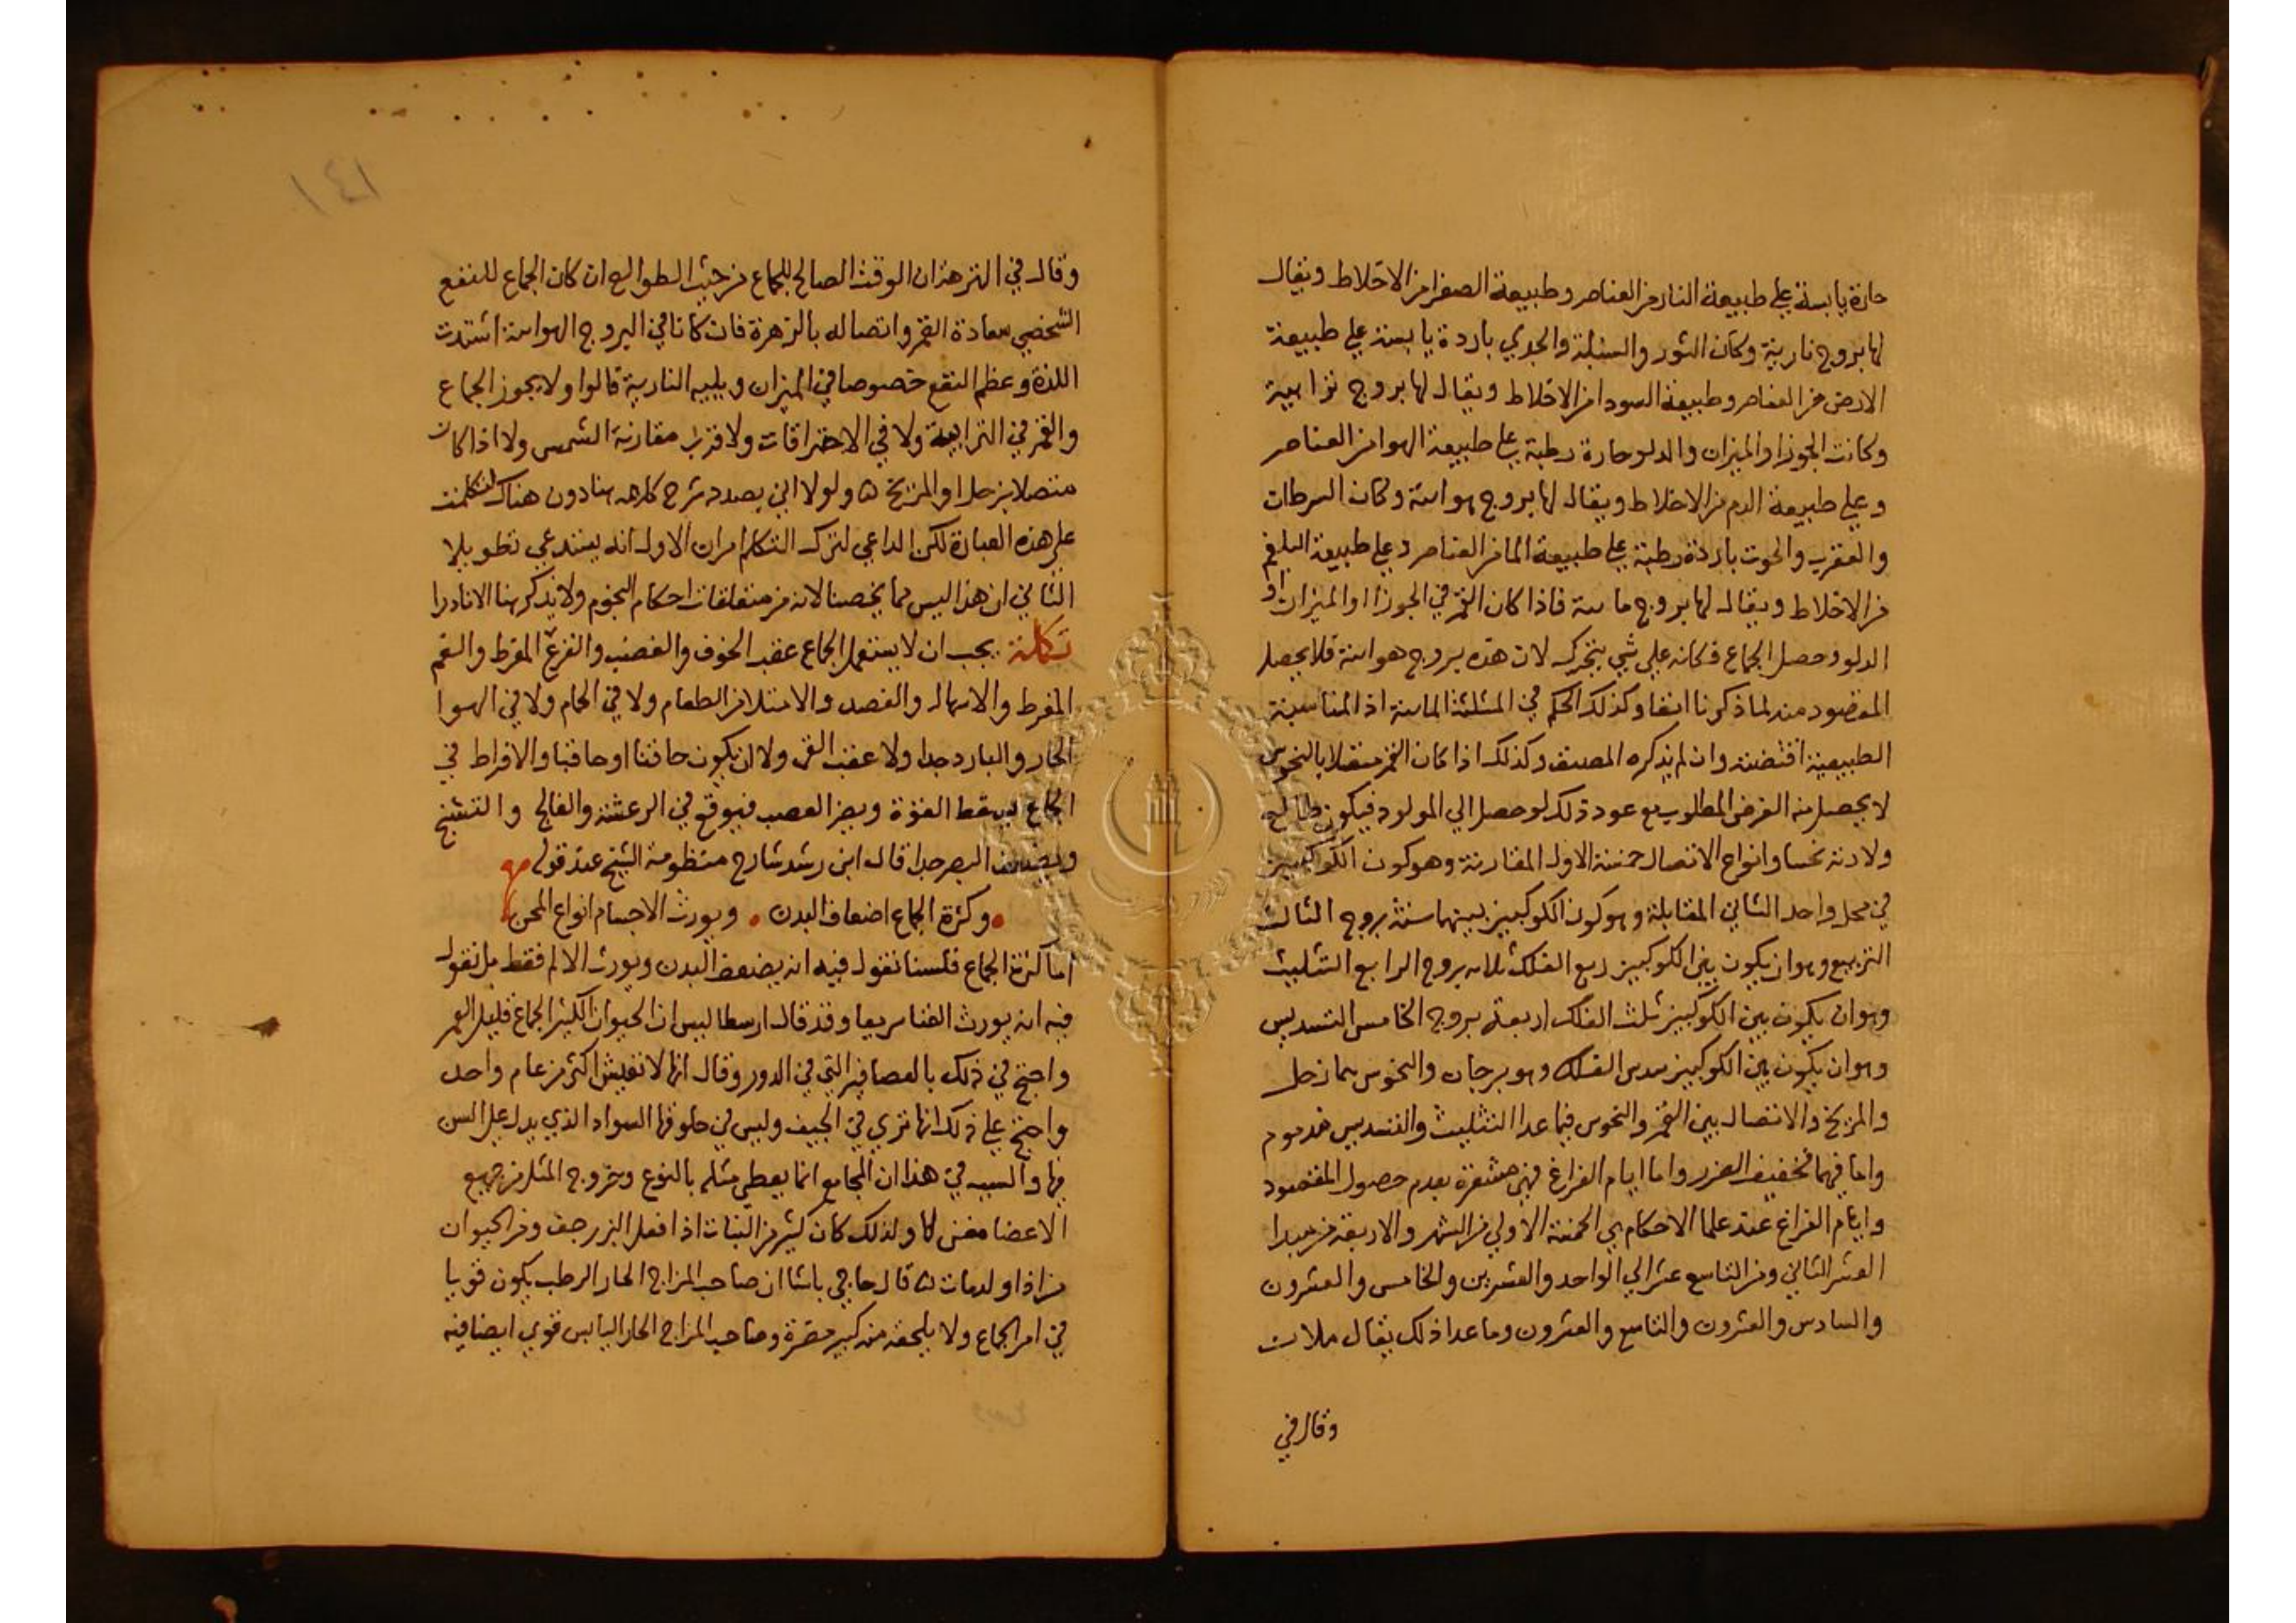 حارة يابسة علي طبيعة النار من العناصر وطبيعة الصفرا من الاخلاط ويقال
لها بروج نارية وكان الثور والسنبلة والجدي باردة يابسة علي طبيعة
الارض من العناصر وطبيعة السودا من الاخلاط ويقال لها بروج ترابية
وكانت الجوزا والميزان والدلو حارة رطبة علي طبيعة الهوا من العناصر
وعلي طبيعة الدم من الاخلاط ويقال لها بروج هوائية وكان السرطان
والعقرب والحوت باردة رطبة علي طبيعة الما من العناصر وعلي طبيعة البلغم
من الاخلاط ويقال لها بروج مائية فاذا كان القمر في الجوزا او الميزان او
الدلو وحصل الجماع فكانه علي شي يتحرك لان هذه بروج هوائية فلا يحصل
المقصود منه لما ذكرنا انفا وكذلك الحكم في المثلثة المائية اذ المناسبة
الطبيعية اقتضته وان لم يذكره المصنف وكذلك اذا كان القمر متصلا بالنحوس
لا يحصل منه الغرض المطلوب مع عود ذلك لو حصل الي المولود فيكون طالع
ولادته نحسا وانواع الاتصال خمسة الاول المقارنة وهو كون الكوكبين
في محل واحد الثاني المقابلة وهو كون الكوكبين بينهما ستة بروج الثالث
التربيع وهو ان يكون بين الكوكبين ربع الفلك ثلاثه بروج الرابع التثليث
وهو ان يكون بين الكوكبين ثلث الفلك اربعة بروج الخامس التسديس
وهو ان يكون بين الكوكبين سدس الفلك وهو برجان والنحوس هما زحل
والمريخ والاتصال بين القمر والنحوس فيما عدا التثليث والتسديس مذموم
واما فيهما فخفيف الضرر واما ايام الفراغ فهي مشعرة بعدم حصول المقصود
وايام الفراغ عند علما الاحكام هي الخمسة الاولي من الشهر والاربعة من مبدا
العشر الثاني ومن التاسع عشر الي الواحد والعشرين والخامس والعشرون
والسادس والعشرون والتاسع والعشرون وما عدا ذلك يقال ملات
وقال في
١٤١
وقال في النزهة ان الوقت الصالح للجماع من حيث الطوالع ان كان الجماع للنفع
الشخصي سعادة القمر واتصاله بالزهرة فان كانا في البروج الهوائية اشتدت
اللذة وعظم النفع خصوصا في الميزان ويليه النارية قالوا ولا يجوز الجماع
والقمر في الترابية ولا في الاحتراقات ولا قرب مقارنة الشمس ولا اذا كان
متصلا بزحل او المريخ ه ولولا اني بصدد شرح كلامه هنا دون هناك لتكلمت
علي هذه العبارة لكن الداعي لترك التكلم امران الاول انه يستدعي تطويلا
الثاني ان هذا ليس مما يخصنا لانه من متعلقات احكام النجوم ولا يذكر هنا الا نادرا
تكملة يجب ان لا يستعمل الجماع عقب الخوف والغضب والفرع المفرط والغم
المفرط والاسهال والفصد والامتلا من الطعام ولا في الحمام ولا في الهوا
الحار والبارد جدا ولا عقب القي ولا ان يكون حاقنا او حاقبا والافراط في
الجماع يسقط القوة ويضر العصب فيوقع في الرعشة والفالج والتشنج
ويضعف البصر جدا قال ابن رشد شارح منظومة الشيخ عند قوله
وكثرة الجماع اضعاف البدن • ويورث الاجسام انواع المحن
اما كثرة الجماع فلسنا نقول فيه انه يضعف البدن ويورث الالم فقط بل نقول
فيه انه يورث الفنا سريعا وقد قال ارسطاليس ان الحيوان الكثير الجماع قليل العمر
واحتج في ذلك بالعصافير التي في الدور وقال انها لا تعيش اكثر من عام واحد
واحتج علي ذلك انها تري في الجيف وليس في حلوقها السواد الذي يدل علي السن
فيها والسبب في هذا ان المجامع انما يعطي مثله بالنوع وخروج المثل من جميع
الاعضا مفن لها ولذلك كان كثير من النبات اذا فعل البزر جف ومن الحيوان
من اذا اولد مات ه قال حاجي باشا ان صاحب المزاج الحار الرطب يكون قويا
في امر الجماع ولا يلحقه منه كبير مضرة وصاحب المزاج الحار اليابس قوي ايضا فيه